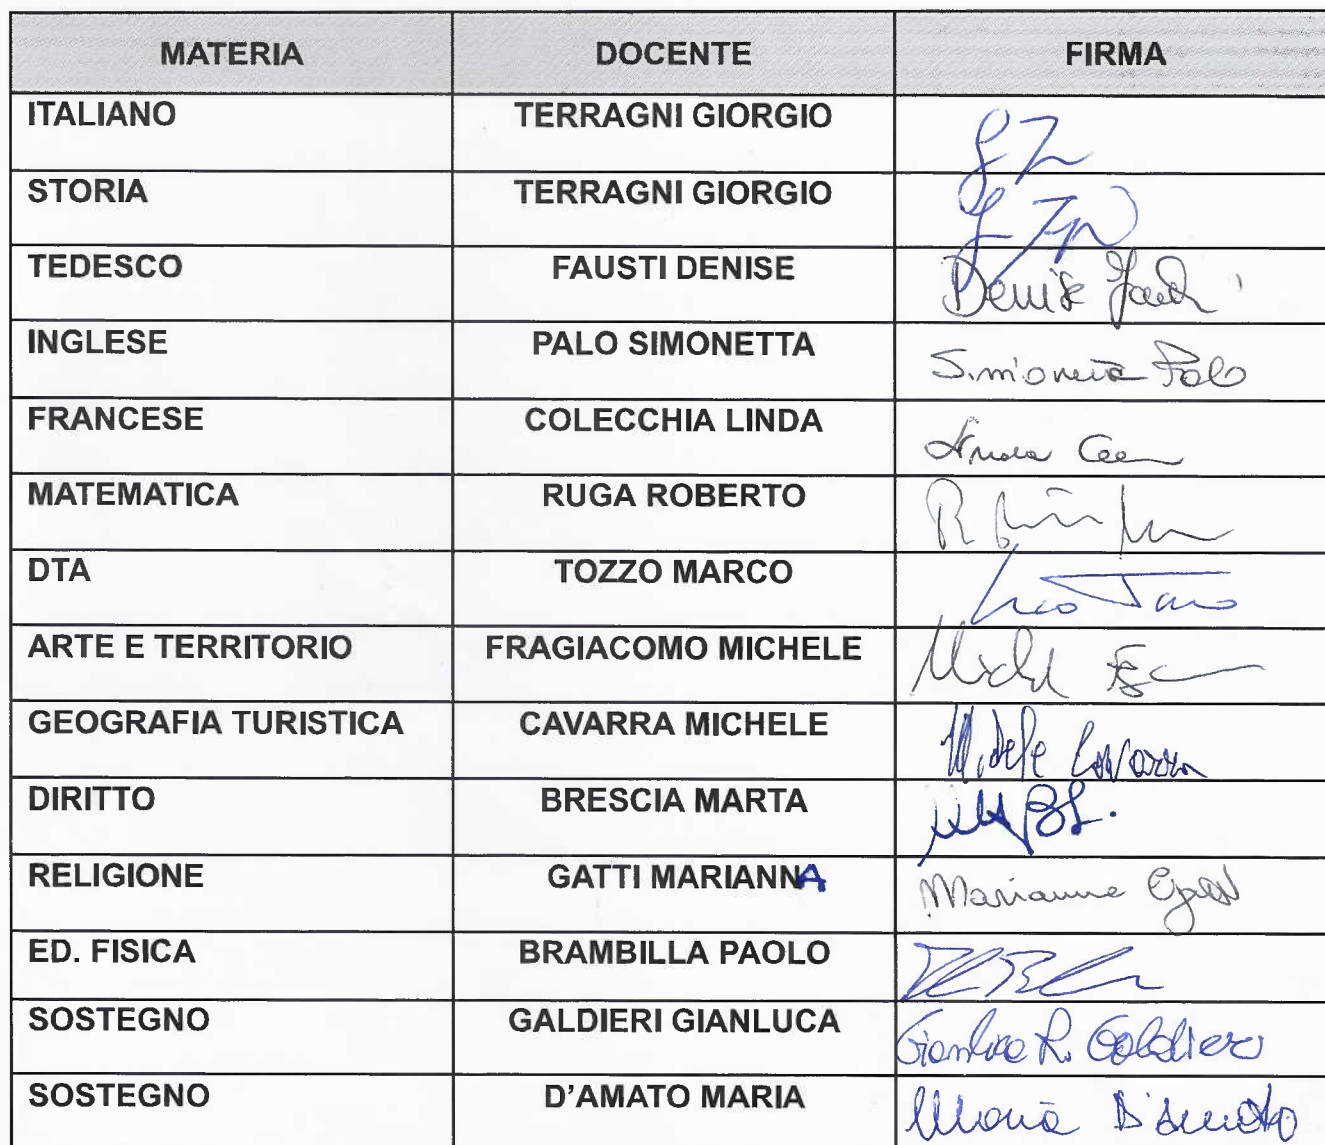 MATERIA DOCENTE FIRMA
ITALIANO TERRAGNI GIORGIO
STORIA TERRAGNI GIORGIO
TEDESCO FAUSTI DENISE Denise
INGLESE PALO SIMONETTA Simonetta Palo
FRANCESE COLECCHIA LINDA
MATEMATICA RUGA ROBERTO
DTA TOZZO MARCO
ARTE E TERRITORIO FRAGIACOMO MICHELE
GEOGRAFIA TURISTICA CAVARRA MICHELE Michele Cavarra
DIRITTO BRESCIA MARTA
RELIGIONE GATTI MARIANNA Marianna
ED. FISICA BRAMBILLA PAOLO
SOSTEGNO GALDIERI GIANLUCA Gianluca R. Galdieri
SOSTEGNO D'AMATO MARIA Maria D'Amato